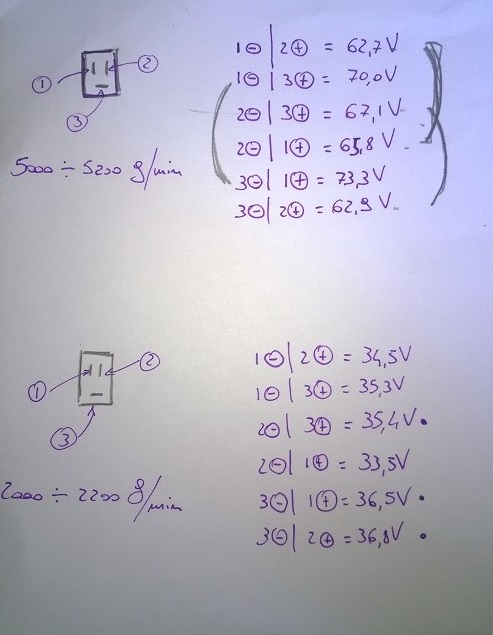 ① ②
③
5000 ÷ 5200 g/min
1⊖ | 2⊕ = 62,7V
1⊖ | 3⊕ = 70,0V
2⊖ | 3⊕ = 67,1V
2⊖ | 1⊕ = 65,8 V
3⊖ | 1⊕ = 73,3V
3⊖ | 2⊕ = 62,9 V
① ②
③
2000 ÷ 2200 g/min
1⊖ | 2⊕ = 34,5V
1⊖ | 3⊕ = 35,3V
2⊖ | 3⊕ = 35,4V •
2⊖ | 1⊕ = 33,5V
3⊖ | 1⊕ = 36,5V •
3⊖ | 2⊕ = 36,8V •